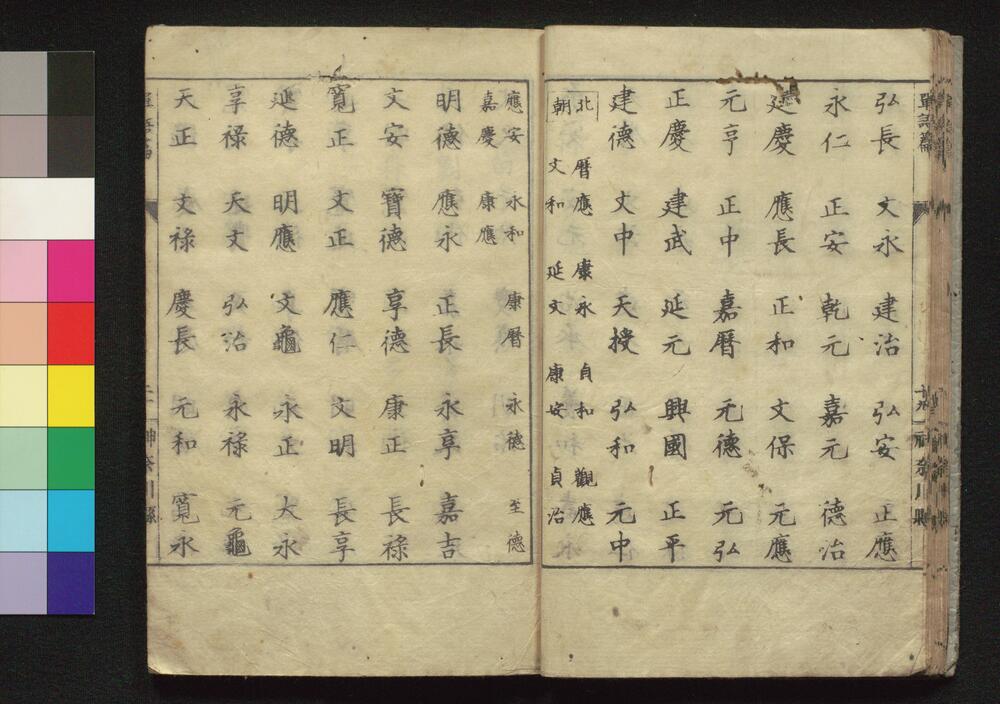 弘長 文永 建治 弘安 正應
永仁 正安 乾元 嘉元 德治
延慶 應長 正和 文保 元應
元亨 正中 嘉曆 元德 元弘
正慶 建武 延元 興國 正平
建德 文中 天授 弘和 元中
北朝 曆應 康永 貞和 觀應
文和 延文 康安 貞治
應安 永和 康曆 永德 至德
嘉慶 康應
明德 應永 正長 永享 嘉吉
文安 寶德 享德 康正 長祿
寬正 文正 應仁 文明 長享
延德 明應 文龜 永正 大永
享祿 天文 弘治 永祿 元龜
天正 文祿 慶長 元和 寬永
神奈川縣